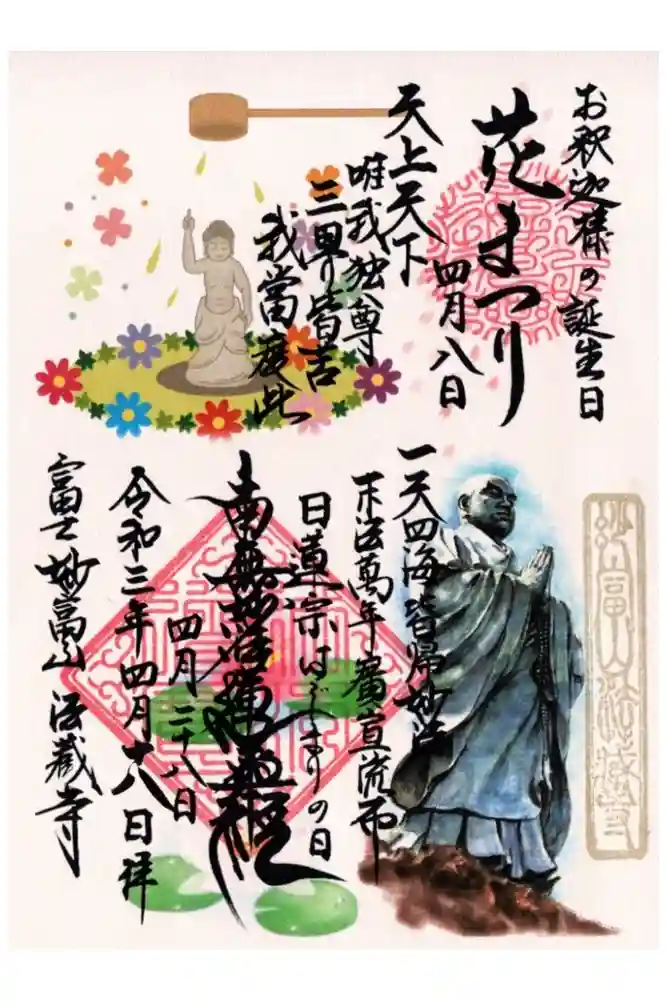 お釈迦様の誕生日
花まつり
四月八日
天上天下
唯我独尊
三界皆苦
我當度此
一天四海皆帰妙法
末法萬年廣宣流布
日蓮宗はじまりの日
南無妙法蓮華經
四月二十八日
令和三年四月六日拝
富士妙富山法蔵寺
妙富山法蔵寺